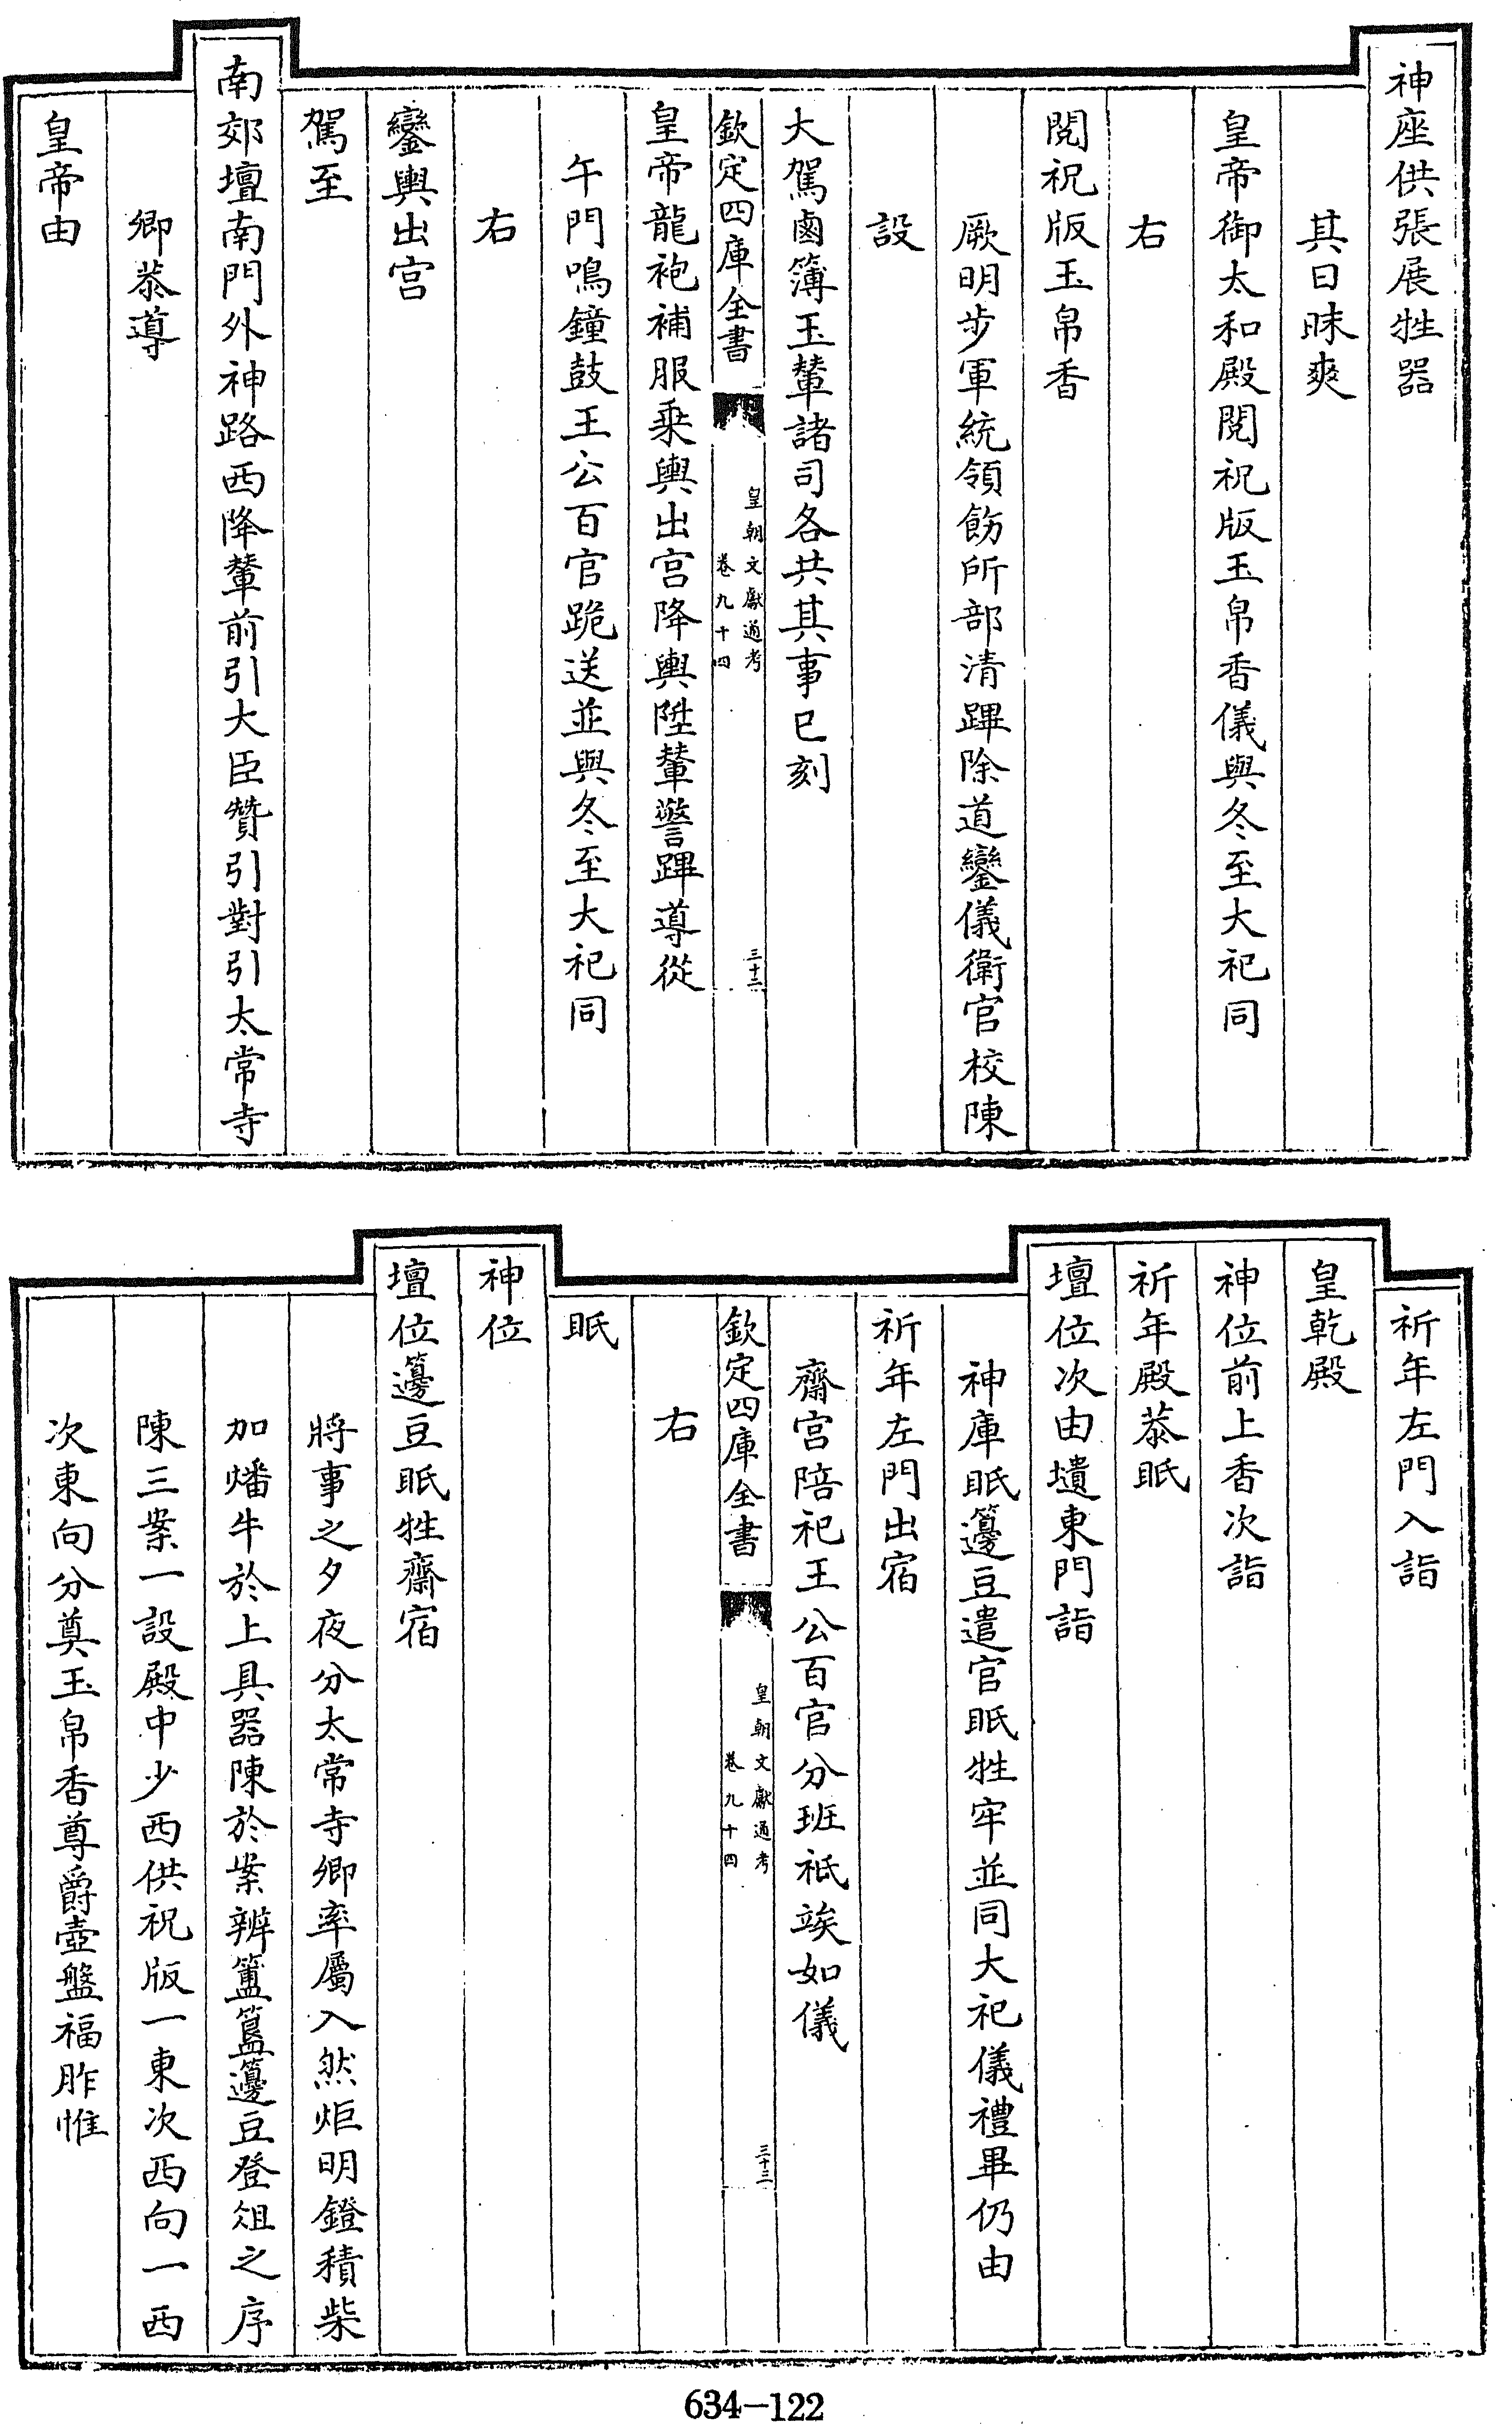 神座供張展牲器
其日昧爽
皇帝御太和殿閱祝版玉帛香儀與冬至大祀同
右
閱祝版玉帛香
厥明步軍統領飭所部清蹕除道鑾儀衛官校陳
設
大駕鹵簿玉輦諸司各共其事巳刻
欽定四庫全書
皇朝文獻通考
卷九十四
三十二
皇帝龍袍補服乗輿出宫降輿陞輦警蹕導從
午門鳴鐘鼓王公百官跪送並與冬至大祀同
右
鑾輿出宫
駕至
南郊壇南門外神路西降輦前引大臣贊引對引太常寺
卿恭導
皇帝由
祈年左門入詣
皇乾殿
神位前上香次詣
祈年殿恭眂
壇位次由壝東門詣
神庫眂籩豆遣官眂牲牢並同大祀儀禮畢仍由
祈年左門出宿
齋宫陪祀王公百官分班祇竢如儀
欽定四庫全書
皇朝文獻通考
卷九十四
三十三
右
眂
神位
壇位籩豆眂牲齋宿
將事之夕夜分太常寺卿率屬入然炬明鐙積柴
加燔牛於上具器陳於案辨簠簋籩豆登俎之序
陳三案一設殿中少西供祝版一東次西向一西
次東向分奠玉帛香尊爵壺盤福胙惟
634-122